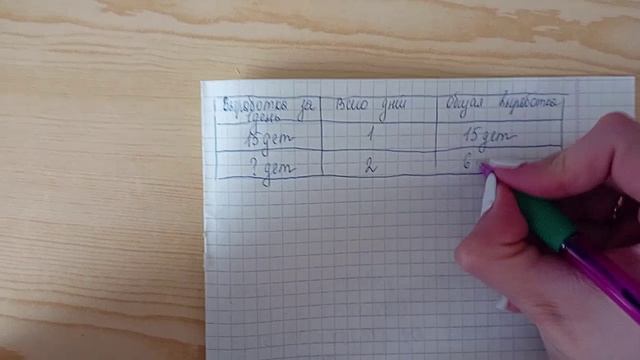 Выработка за Всего дней Общая выработка
1 день
15 дет 1 15 дет
? дет 2 6